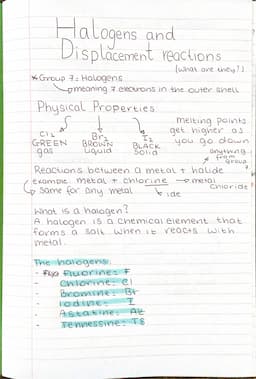 Halogens and
Displacement reactions
(what are they?)
* Group 7: Halogens
meaning 7 electrons in the outer shell
Physical Properties
Cl2 Br2 I2
GREEN BROWN BLACK
gas Liquid Solid
melting points
get higher as
you go down
Reactions between a metal + halide
anything
from
group 7
example: metal + chlorine → metal
chloride
Same for any metal
ide
What is a halogen?
A halogen is a chemical element that
forms a salt when it reacts with
metal.
The halogens:
- Fluorine: F
- Chlorine: Cl
- Bromine: Br
- Iodine: I
- Astatine: At
- Tennessine: Ts